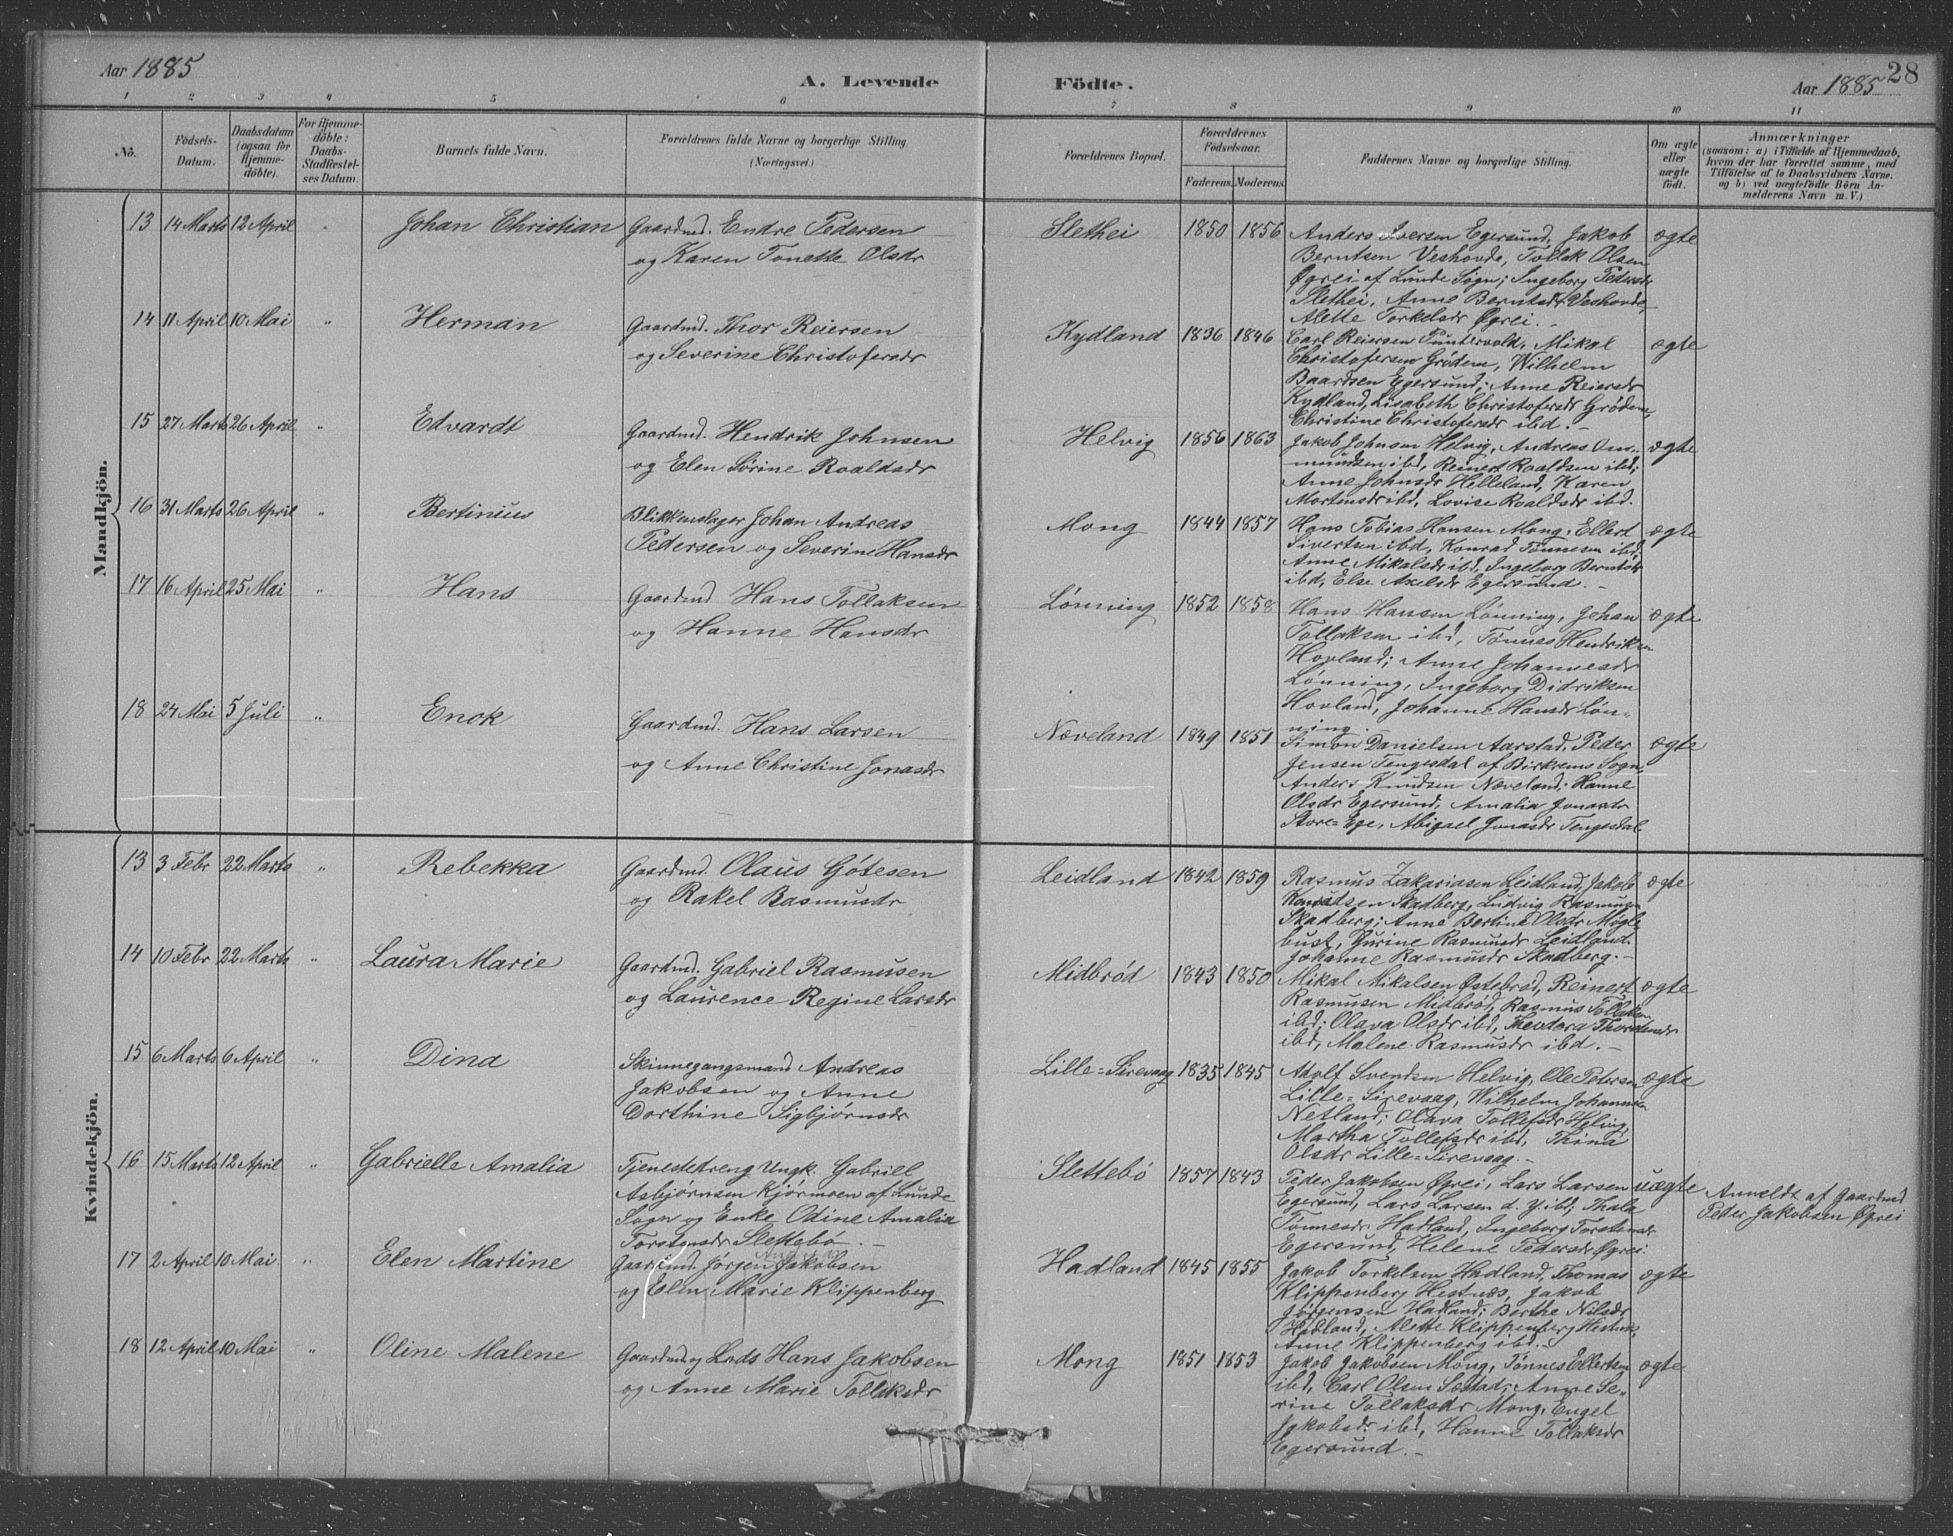 Aar 1885
A. Levende Födte.
Aar 1885
28
1 2 3 4 5 6 7 8 9 10 11
No.
Födsels-
Datum.
Daabsdatum
(ogsaa for
Hjemme-
döbte).
For Hjemme-
döbte:
Daabs-
Stadfæstel-
ses Datum.
Barnets fulde Navn.
Forældrenes fulde Navne og borgerlige Stilling
(Næringsvei.)
Forældrenes Bopæl.
Forældrenes
Födselsaar.
Faderens. Moderens.
Faddernes Navne og borgerlige Stilling.
Om ægte
eller
uægte
födt.
Anmærkninger
(saasom: a) i Tilfælde af Hjemmedaab,
hvem der har forrettet samme, med
Tilföielse af to Daabsvidners Navne.
og b) ved uægtefödte Börn An-
melderens Navn m. V.)
Mandkjön.
13 14 Marts 12 April " Johan Christian
Gaardmd. Endre Pedersen
og Karen Tonette Olsdr
Slethei 1850 1856
Anders Iversen Egersund, Jakob
Berntsen Veshovde, Tollak Olsen
Øgrei af Lunde Sogn; Ingeborg Pedersdr
Slethei, Anne Berntsdr Veshovde,
Alette Torkelsdr Øgrei.-
ægte
14 11 April 10 Mai " Herman
Gaardmd. Thor Reiersen
og Severine Christofersdr
Kydland 1836 1846
Carl Reiersen Puntervold, Mikal
Christofersen Grødem, Wilhelm
Baardsen Egersund; Anne Reiersdr
Kydland, Lisabeth Christofersdr Grødem,
Christine Christofersdr ibid.-
ægte
15 27 Marts 26 April " Edvardt
Gaardmd. Hendrik Johnsen
og Elen Sørine Roaldsdr
Helvig 1856 1863
Jakob Johnsen Helvig, Andreas Om-
mundsen ibd, Reinert Roaldsen ibd;
Anne Johnsdr Helleland, Karen
Mortensdr ibd, Lovise Roaldsdr ibd.
ægte
16 31 Marts 26 April " Bertinius
Blikkenslager Johan Andreas
Pedersen og Severine Hansdr
Mong 1844 1857
Hans Tobias Hansen Mong, Ellert
Sivertsen ibd, Konrad Tønnesen ibd,
Anne Mikalsdr ibd, Ingeborg Berntsdr
ibd, Else Axelsdr Egersund.-
ægte
17 16 April 25 Mai " Hans
Gaardmd Hans Tollaksen
og Hanne Hansdr
Lønning 1852 1858
Hans Hansen Lønning, Johan
Tollaksen ibd, Tønnes Hendriksen
Hovland; Anne Johannesdr
Lønning, Ingeborg Didriksen
Hovland, Johanne Hansdr Løn-
ning.-
ægte
18 24 Mai 5 Juli " Enok
Gaardmd. Hans Larsen
og Anne Christine Jonasdr
Næveland 1849 1851
Simon Danielsen Aarstad, Peder
Jensen Tengesdal af Birkrems Sogn,
Anders Knudsen Næveland; Hanne
Olsdr Egersund, Amalia Jonasdr
Store=Ege, Abigael Jonasdr Tengesdal.
ægte
Kvindekjön.
13 3 Febr 22 Marts " Rebekka
Gaardmd. Olaus Gótesen
og Rakel Rasmusdr
Leidland 1842 1859
Rasmus Zakariasen Leidland, Jakob
Skadberg, Ludvig Rasmusen
Skadberg; Anne Bertine Olsdr Møgle-
bust, Gurine Rasmusdr Leidland.
Johanne Rasmusdr Skadberg.-
ægte
14 10 Febr 22 Marts " Laura Marie
Gaardmd. Gabriel Rasmusen
og Laurence Regine Larsdr
Midbrød 1843 1850
Mikal Mikalsen Østebrød, Reinert
Rasmusen Midbrød, Rasmus Tollaksen
ibd; Olava Olsdr ibd, Theodora Thorstensdr
ibd, Malene Rasmusdr ibd.-
ægte
15 6 Marts 6 April " Dina
Skinnegangsmand Andreas
Jakobsen og Anne
Dorthine Sigbjørnsdr
Lille=Sirevaag 1835 1845
Adolf Svendsen Helvig, Ole Petersen
Lille=Sirevaag, Wilhelm Johannesen
Netland; Olava Tollefsdr Helvig,
Martha Tollefsdr ibd, Thina
Olsdr Lille=Sirevaag.-
ægte
16 15 Marts 12 April " Gabrielle Amalia
Tjenestedreng Ungk. Gabriel
Asbjørnsen Kjørmoen af Lunde
Sogn og Enke Odine Amalia
Torstensdr Slettebø.-
Slettebö 1857 1843
Peder Jakobsen Øgrei, Lars Larsen
Egersund, Lars Larsen d. Y. ibd; Thala
Tønnesdr Hadland, Ingeborg Torstensdr
Egersund, Helene Pedersdr Øgrei.
uægte
Anmeldt af Gaardmd
Peder Jakobsen Øgrei
17 2 April 10 Mai " Elen Martine
Gaardmd. Jørgen Jakobsen
og Elen Marie Klippenberg
Hadland 1845 1855
Jakob Torkelsen Hadland, Thomas
Klippenberg Hestnæs, Jakob
Jørgensen Hadland; Berthe Nilsdr
Hadland, Alette Klippenberg Hestnæs,
Anne Klippenberg ibd.-
ægte
18 12 April 10 Mai " Oline Malene
Gaardmd og Lods Hans Jakobsen
og Anne Marie Tollaksdr
Mong 1851 1853
Jakob Jakobsen Mong, Tønnes Ellertsen
ibd, Carl Olsen Sæstad; Anne Se-
rine Tollaksdr Mong, Engel
Jakobsdr ibd, Hanne Tollaksdr
Egersund.-
ægte